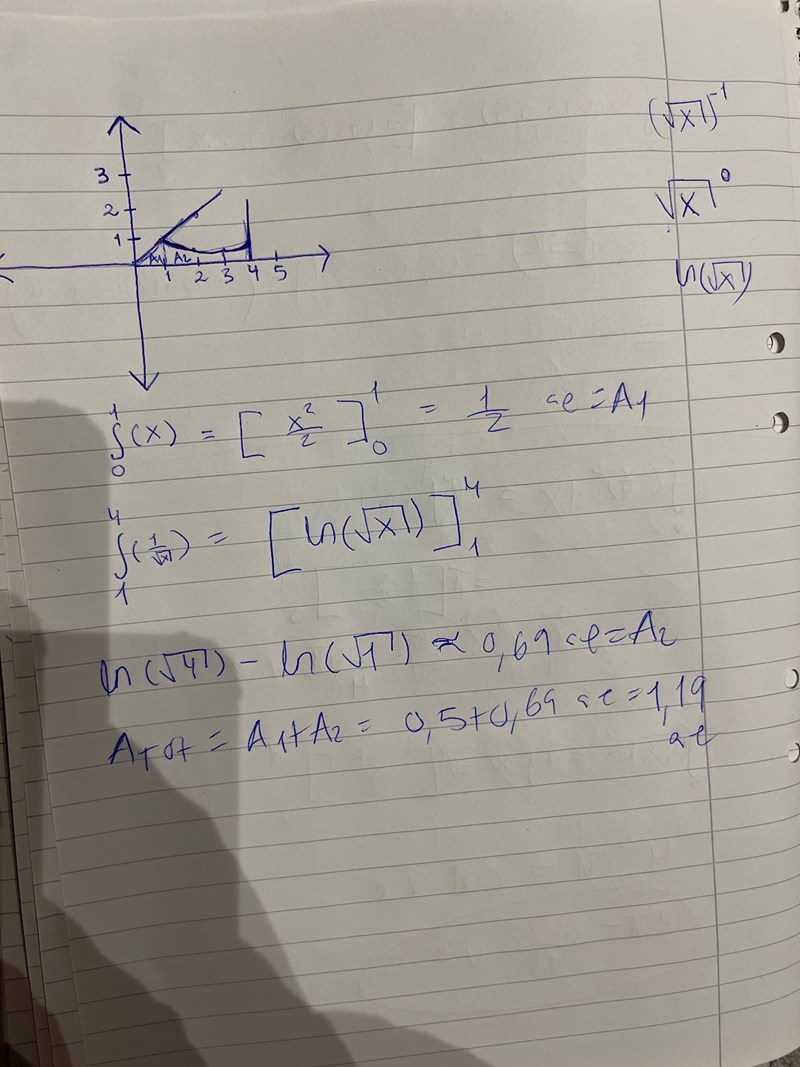 (√x)⁻¹
3
√x⁰
2
ln(√x)
1
A1 A2
1 2 3 4 5
∫₀¹(x) = [x²/2]₀¹ = 1/2 ae = A1
∫₁⁴(1/√x) = [ln(√x)]₁⁴
ln(√4) - ln(√1) ≈ 0,69 ae = A2
ATot = A1+A2 = 0,5+0,69 ae = 1,19
ae